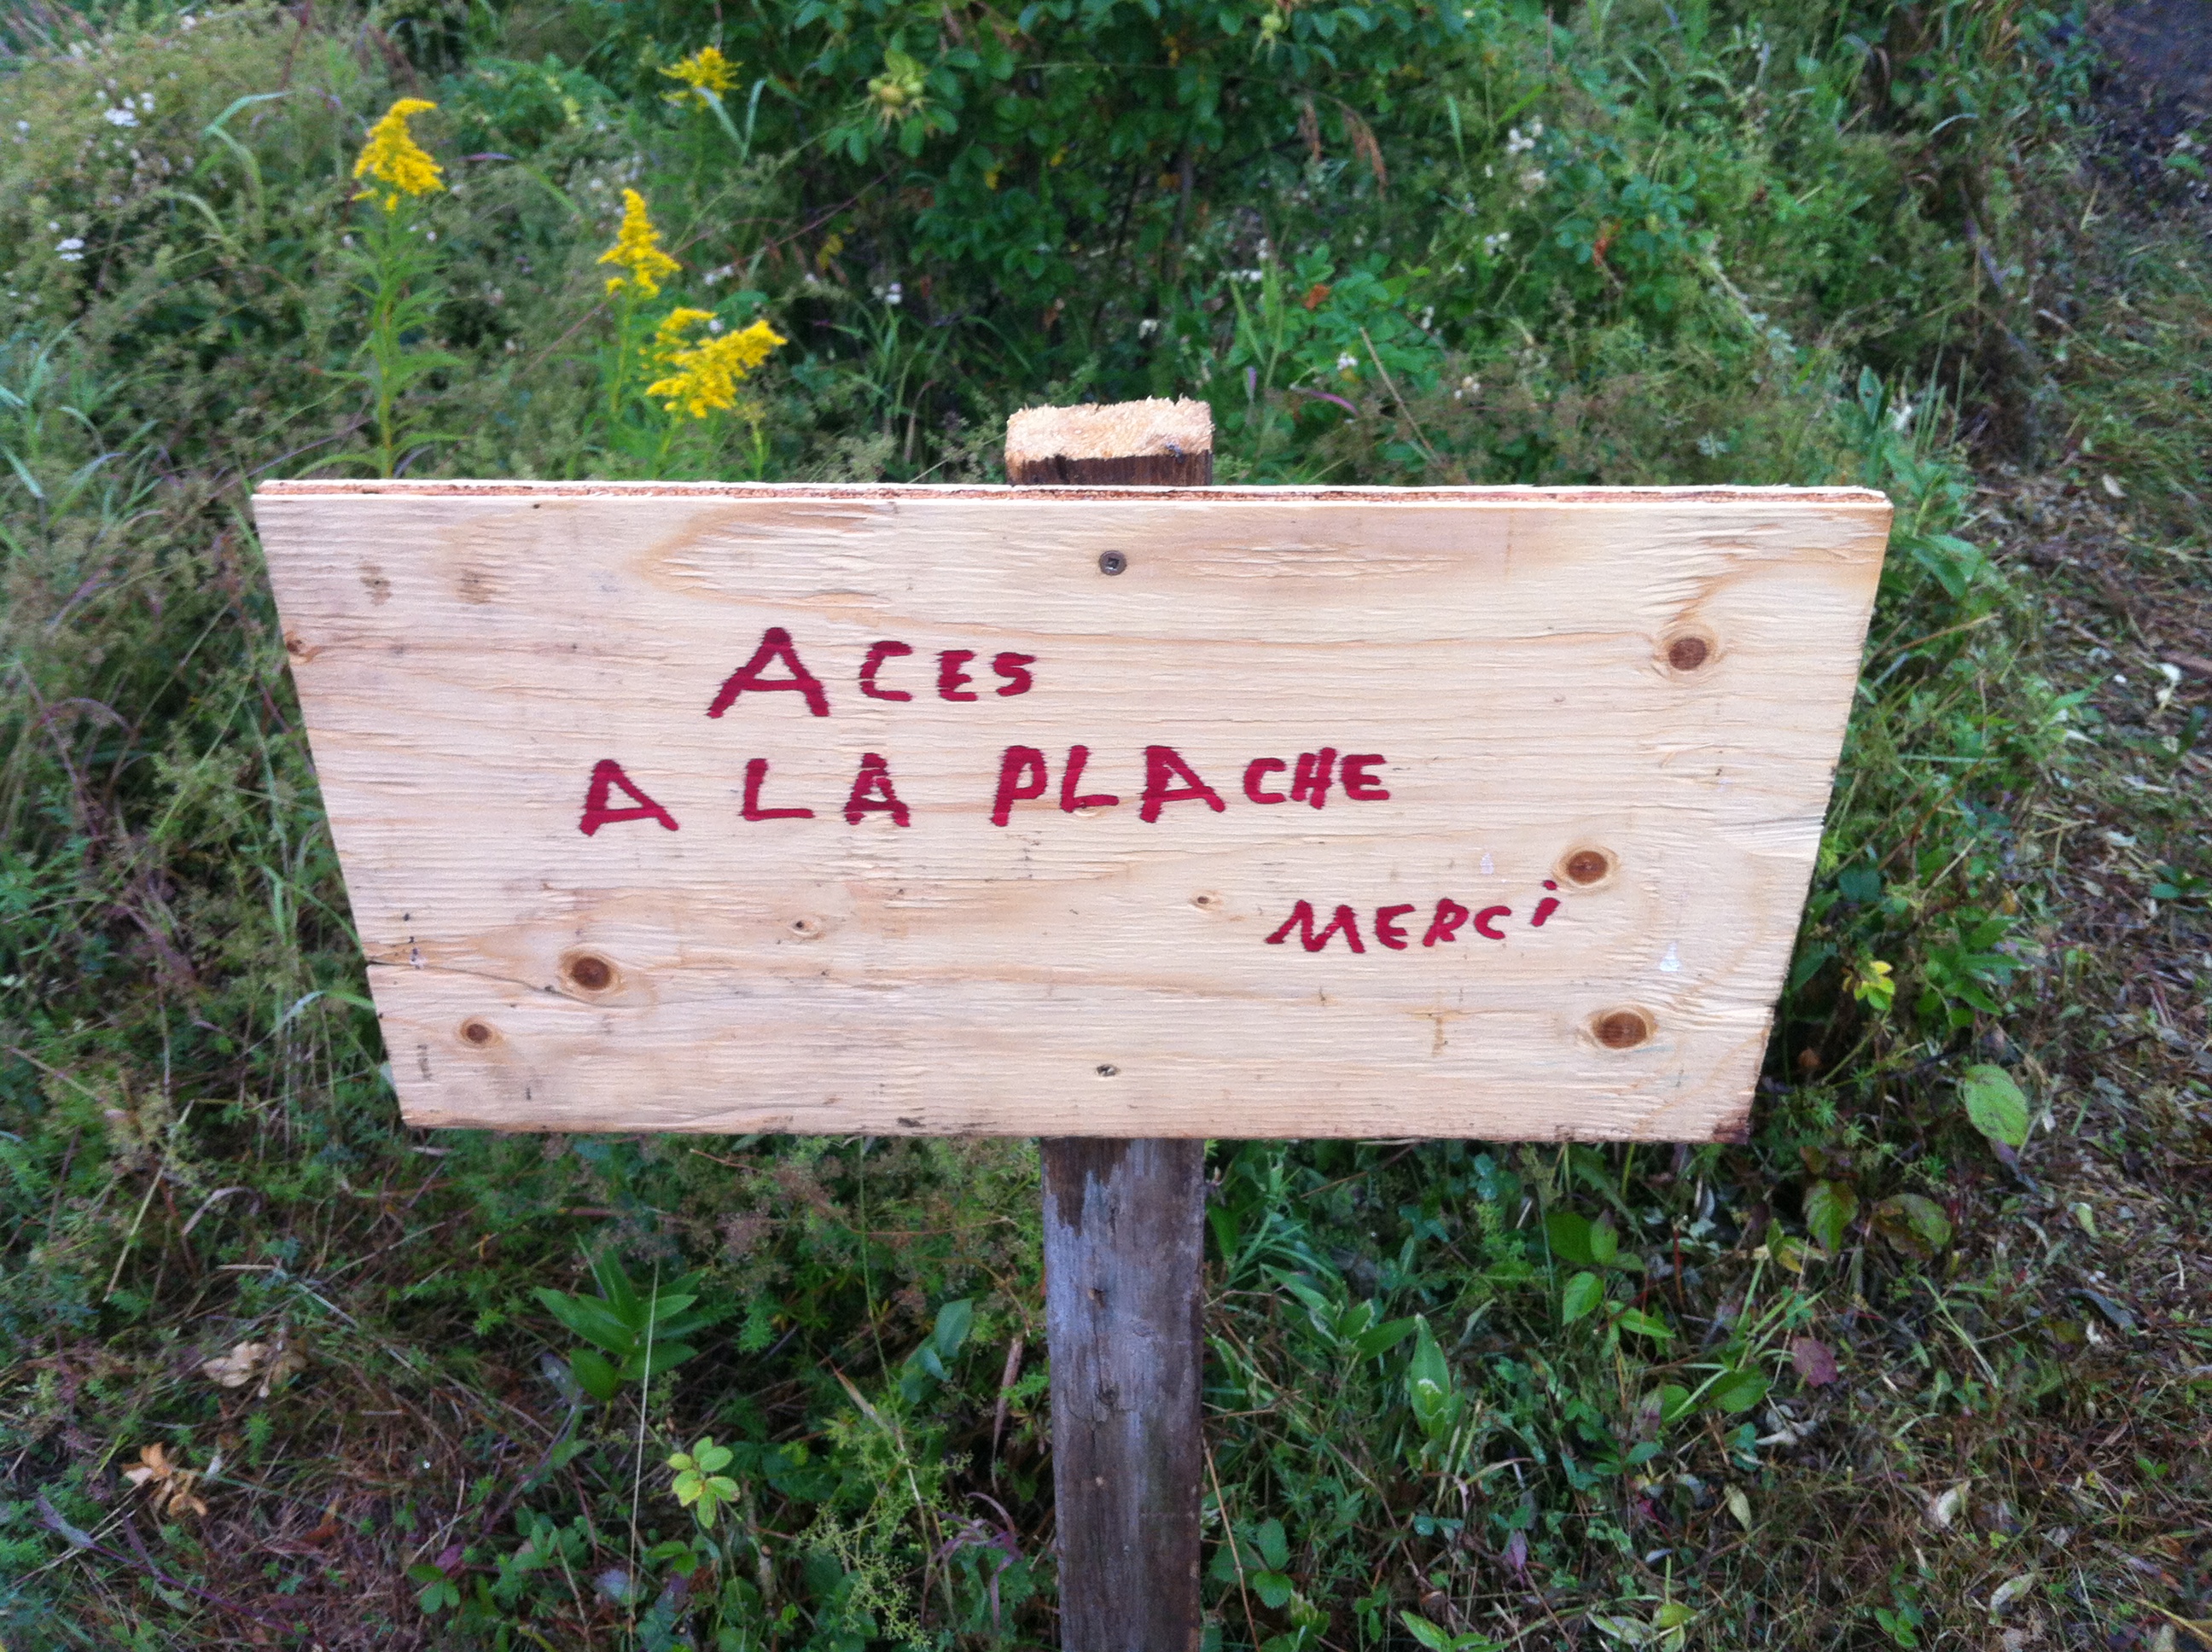 ACES
A LA PLACHE
MERCi